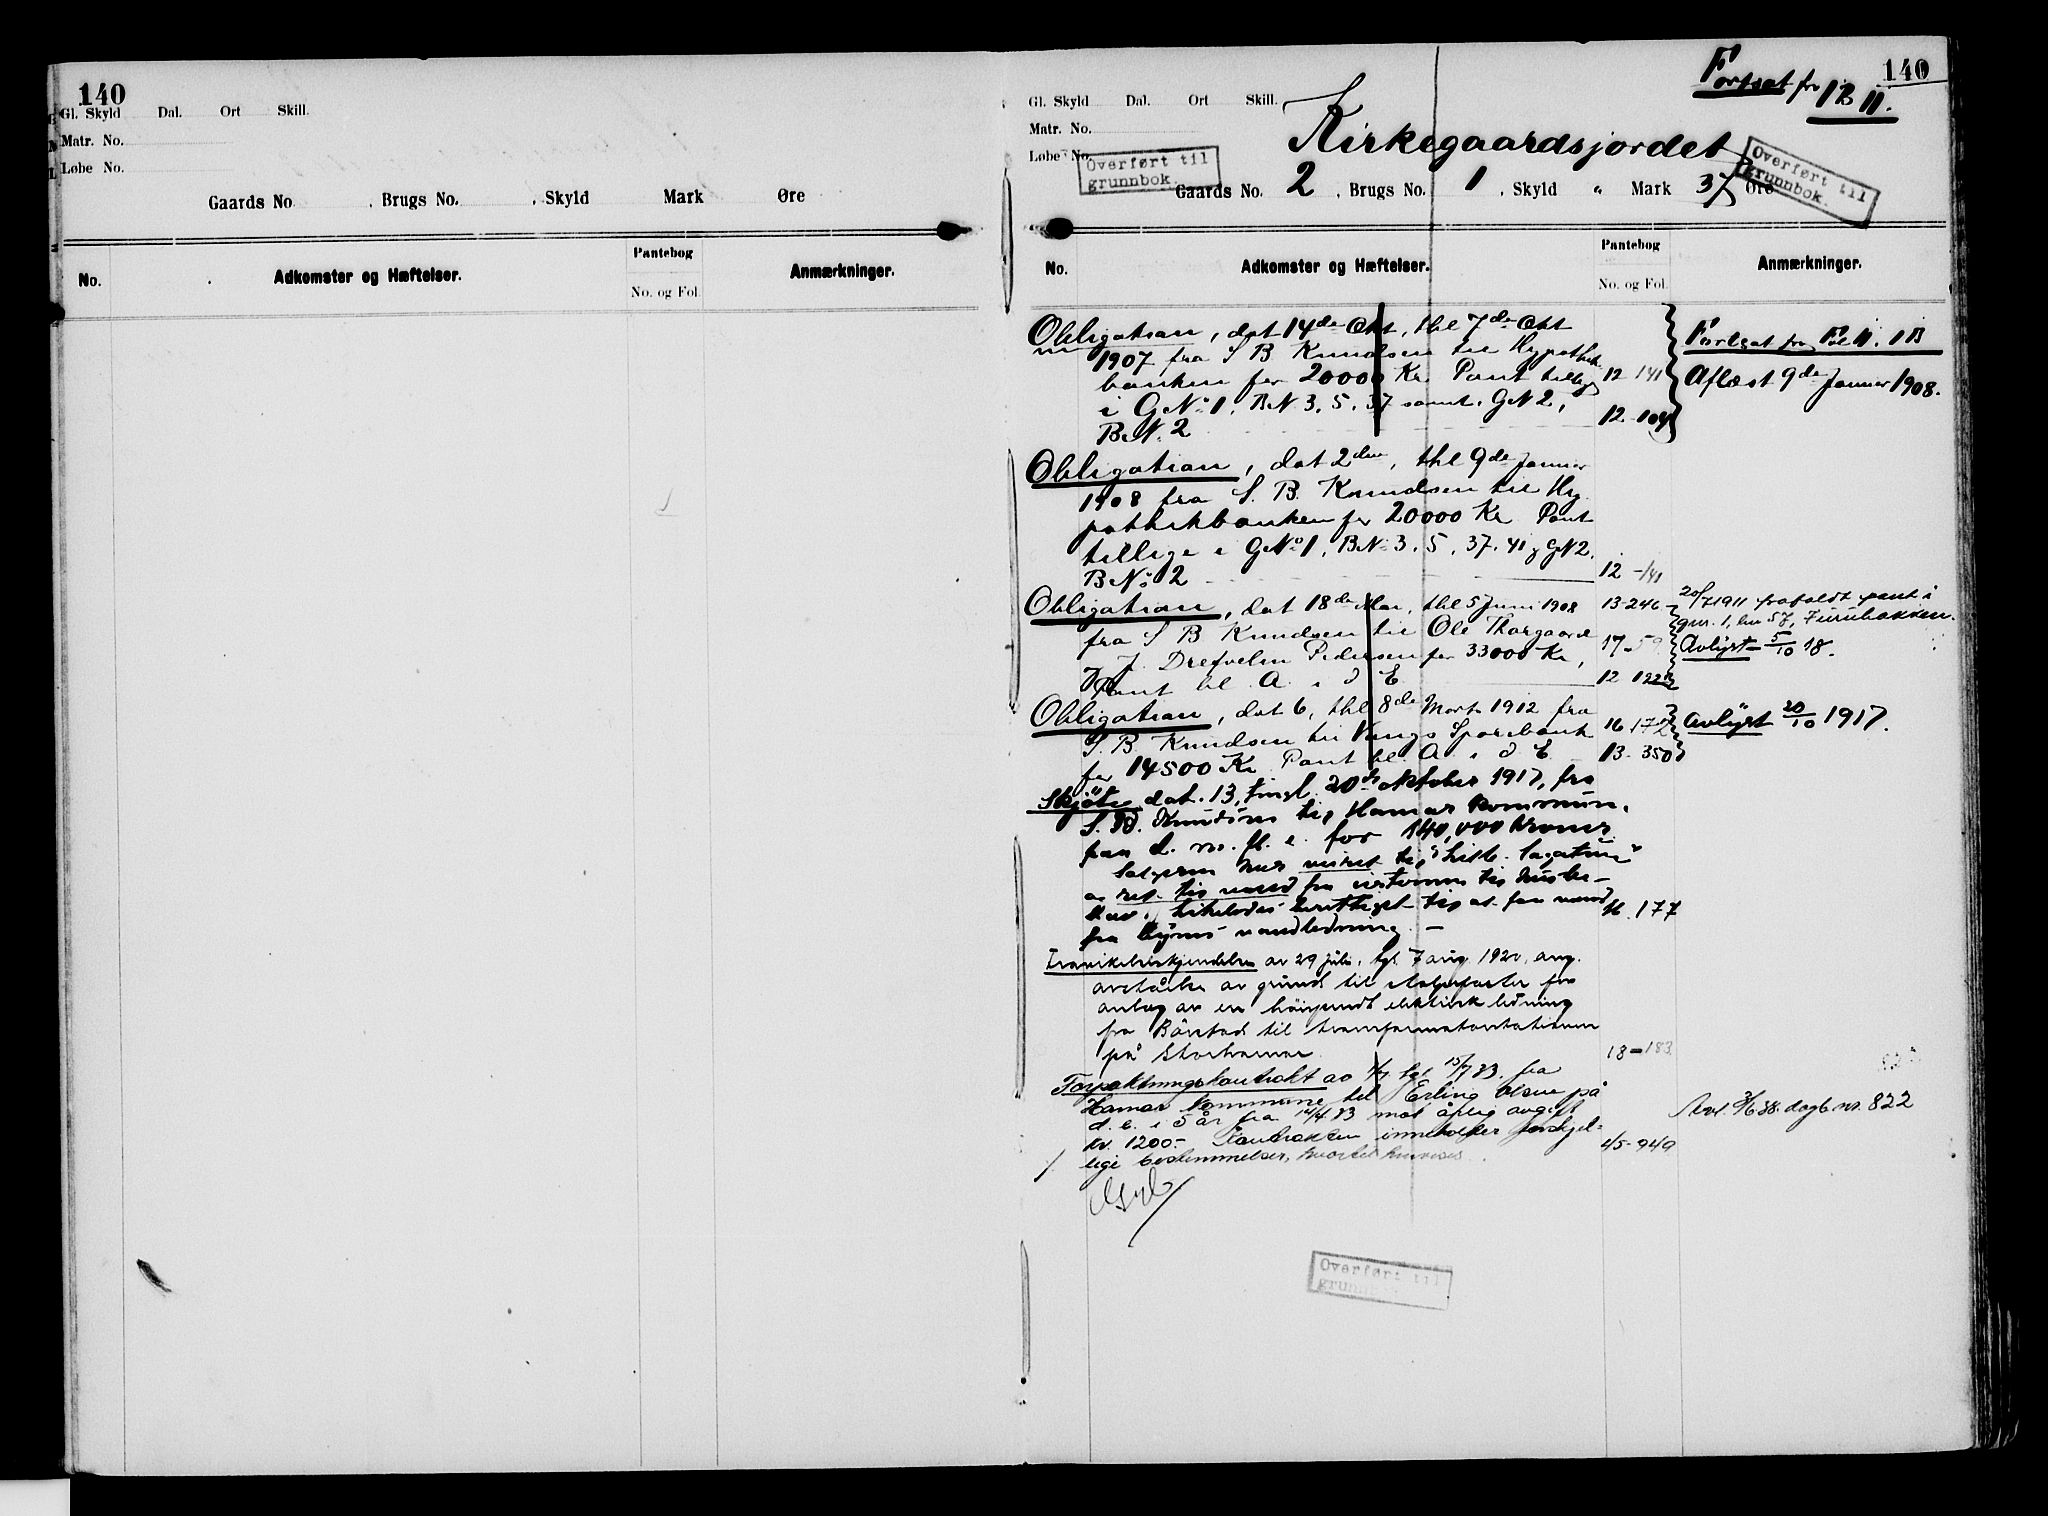 140
Gl. Skyld Dal. Ort Skill.
Matr. No.
Løbe No.
Gaards No. , Brugs No. , Skyld Mark Øre
No. Adkomster og Hæftelser. Pantebog No. og Fol. Anmærkninger.
140
Fortsat fr 1B 11.
Gl. Skyld Dal. Ort Skill.
Matr. No.
Løbe No.
Kirkegaardsjordet
Overført til
grunnbok.
Overført til
grunnbok.
Gaards No. 2 , Brugs No. 1 , Skyld " Mark 37 Øre
No. Adkomster og Hæftelser. Pantebog No. og Fol. Anmærkninger.
Obligation, dat 14de Okt, thl 7de Okt
1907 fra S B Knudsen til Hypothek
banken for 20000 Kr Pant tillige 12 141
i GNo 1, BN 3, 5, 37 samt GN 2, 12-104
BN. 2
Fortsat fra Fol 11. 1B
Aflæst 9de Januar 1908.
Obligation, dat 2den, thl 9de Januar
1908 fra S. B. Knudsen til Hy
pothekbanken for 20000 Kr Pant
tillige i GNo 1, BN 3, 5, 37, 41 og GN 2.
BNo 2 12-141
Obligation, dat 18de Mai, thl 5 Juni 1908 13-246
fra S B Knudsen til Ole Thorgaard
og J. Drefvelin Pedersen for 33000 Kr, 17-59
Pant bl. A. i d E 12 122
20/7 1911 frafaldt pant i
gnr. 1, bn 57, Furubakken.
Avlyst 5/10 18.
Obligation, dat 6, thl 8de Marts 1912 fra
S. B. Knudsen til Vangs Sparebank 16 172
for 14500 Kr Pant bl. A i d E 13-350
Avlyst 20/10 1917.
Skjøte dat. 13, tingl. 20de oktober 1917, fra
S. B. Knudsen til Hamar kommune
paa d. m. fl. e. for 140,000 kroner
Sælgeren har
ret til vand fra cisternen til
likeledes berettiget til at faa vand 16. 177
fra byens vandledning. —
av 29 juli, tgl. 7 aug. 1920, ang.
avståelse av grund til stolpefæster for
anlæg av en høispændt elektrisk ledning
fra Børstad til transformatorstationen
på Storhamar 18-183
Forpaktningskontrakt av 1/7 tgl 15/7 33. fra
Hamar kommune til Erling Olsen på
d. e. i 5 år fra 14/4 33 mot årlig avgift
kr. 1200.- Kontrakten inneholder forskjel-
lige bestemmelser, hvortil henvises. 45-949
Avl. 3/6 38. dagb. nr. 822
Overført til
grunnbok.